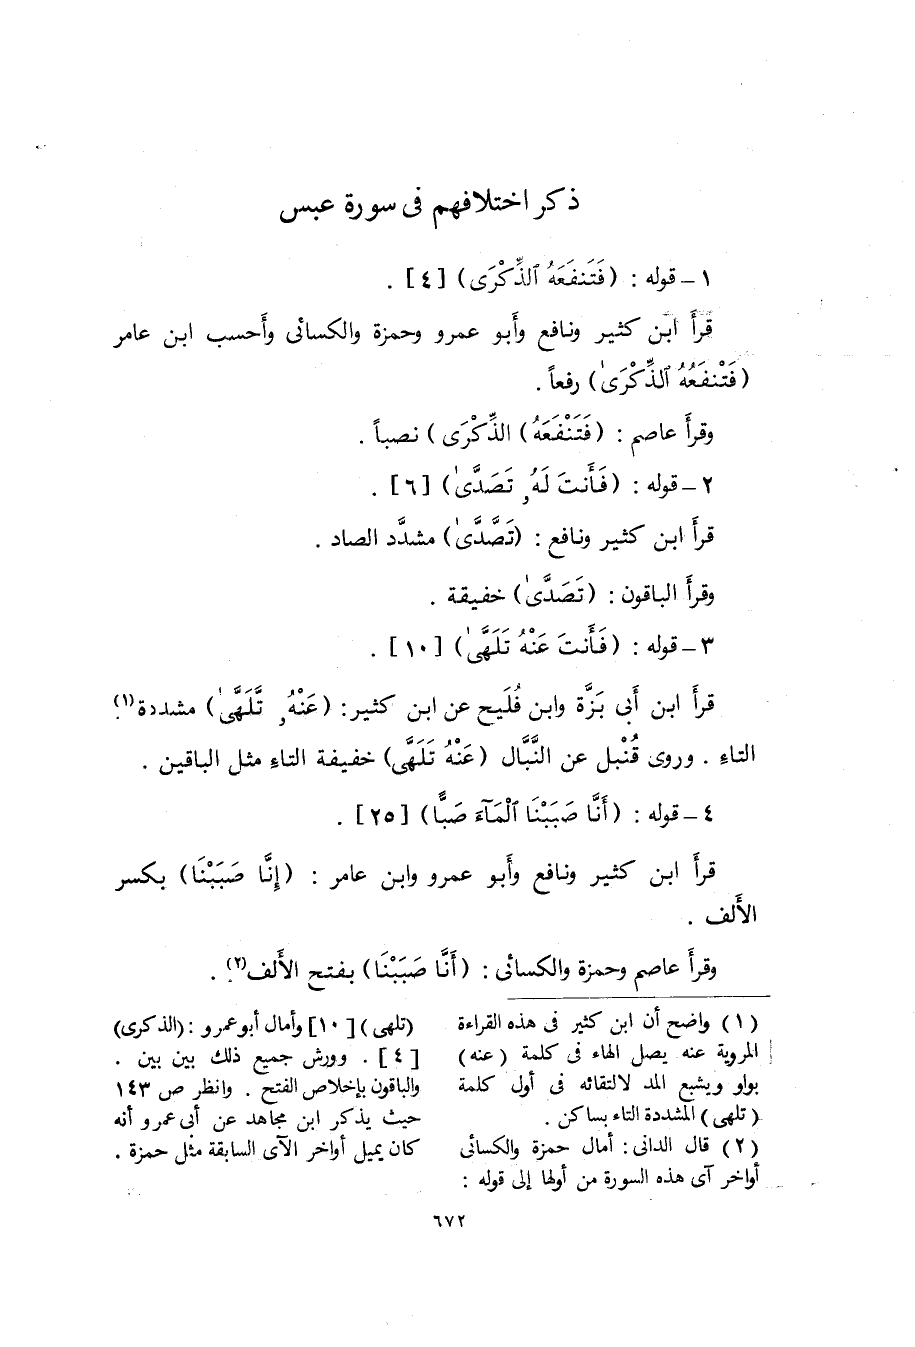 ذكر اختلافهم فى سورة عبس
١ – قوله : (فَتَنفَعَهُ ٱلذِّكْرَى) [٤] .
قرأَ ابن كثير ونافع وأَبو عمرو وحمزة والكسائى وأَحسب ابن عامر
(فَتَنْفَعُهُ ٱلذِّكْرَىٰ) رفعاً .
وقرأَ عاصم : (فَتَنْفَعَهُ) الذِّكْرَى ) نصباً .
٢ – قوله : (فَأَنتَ لَهُۥ تَصَدَّىٰ) [٦] .
قرأَ ابن كثير ونافع : (تَصَّدَّىٰ) مشدَّد الصاد .
وقرأَ الباقون : (تَصَدَّىٰ) خفيفة .
٣ – قوله : (فَأَنتَ عَنْهُ تَلَهَّىٰ) [١٠] .
قرأَ ابن أَبى بَزَّة وابن فُلَيح عن ابن كثير: (عَنْهُۥ تَّلَهَّىٰ) مشددة(١)
التاءِ . وروى قُنْبل عن النَّبَّال (عَنْهُ تَلَهَّى) خفيفة التاءِ مثل الباقين .
٤ – قوله : (أَنَّا صَبَبْنَا ٱلْمَآءَ صَبًّا) [٢٥] .
قرأَ ابن كثير ونافع وأَبو عمرو وابن عامر : (إِنَّا صَبَبْنَا) بكسر
الأَلف .
وقرأَ عاصم وحمزة والكسائى : (أَنَّا صَبَبْنَا) بفتح الأَلف(٢) .
(١) واضح أن ابن كثير فى هذه القراءة
المروية عنه يصل الهاء فى كلمة (عنه)
بواو ويشبع المد لالتقائه فى أول كلمة
(تلهى) المشددة التاء بساكن .
(٢) قال الدانى : أمال حمزة والكسائى
أواخر آى هذه السورة من أولها إلى قوله :
(تلهى) [١٠] وأمال أبو عمرو : (الذكرى)
[٤] . وورش جميع ذلك بين بين .
والباقون بإخلاص الفتح . وانظر ص ١٤٣
حيث يذكر ابن مجاهد عن أبى عمرو أنه
كان يميل أواخر الآى السابقة مثل حمزة .
٦٧٢